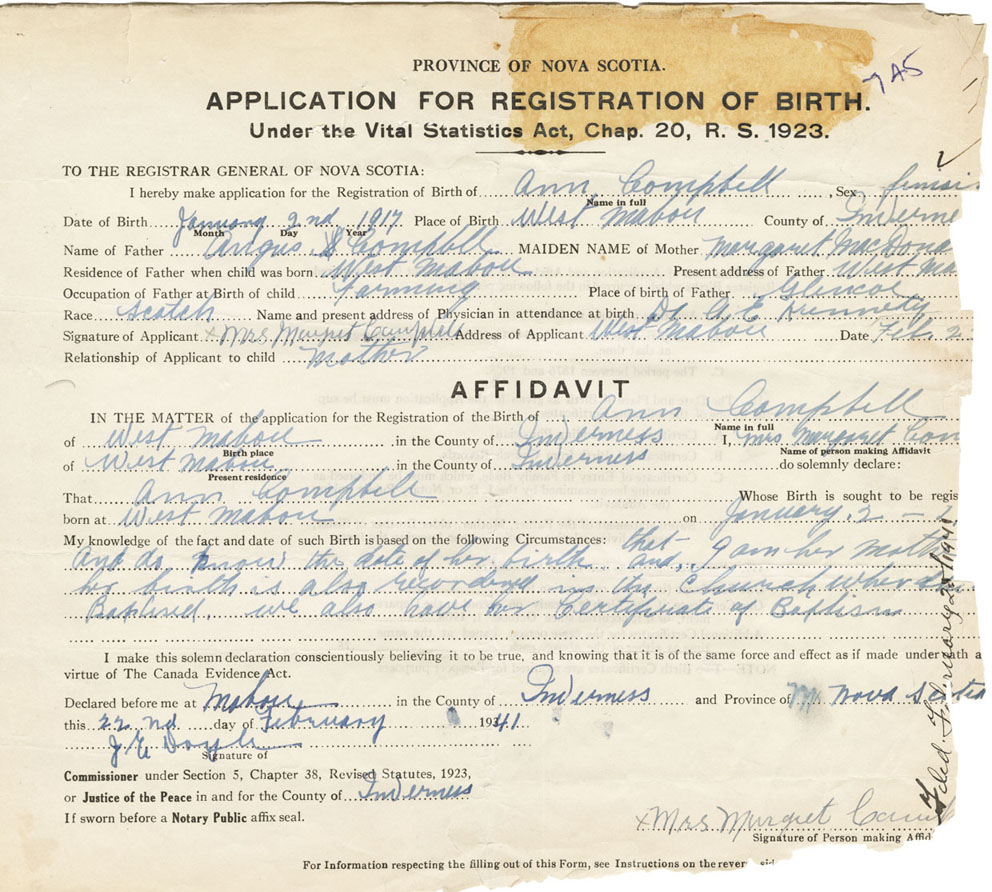 PROVINCE OF NOVA SCOTIA.
7A5
APPLICATION FOR REGISTRATION OF BIRTH.
Under the Vital Statistics Act, Chap. 20, R. S. 1923.
TO THE REGISTRAR GENERAL OF NOVA SCOTIA:
I hereby make application for the Registration of Birth of Ann Campbell , Sex
Name in full
Date of Birth January 2nd 1917 Place of Birth West Mabou County of Inverne
Month Day Year
Name of Father Angus S Campbell MAIDEN NAME of Mother Margaret MacDona
Residence of Father when child was born West Mabou Present address of Father West Ma
Occupation of Father at Birth of child Farming Place of birth of Father Glencoe
Race Scotch Name and present address of Physician in attendance at birth Dr A E Kennedy
Signature of Applicant x Mrs Margret Campbell Address of Applicant West Mabou Date Feb. 2
Relationship of Applicant to child Mother
AFFIDAVIT
IN THE MATTER of the application for the Registration of the Birth of Ann Campbell
Name in full
of West Mabou in the County of Inverness I, Mrs. Margaret Cam
Birth place Name of person making Affidavit
of West Mabou in the County of Inverness do solemnly declare:
Present residence
That Ann Campbell Whose Birth is sought to be regis
born at West Mabou on January 2 - 1
My knowledge of the fact and date of such Birth is based on the following Circumstances: that
And do know the date of her birth and, I am her Moth
her birth is also recorded in the Church where
Baptised. we also have her Certificate of Baptism
I make this solemn declaration conscientiously believing it to be true, and knowing that it is of the same force and effect as if made under oath a
virtue of The Canada Evidence Act.
Declared before me at Mabou in the County of Inverness and Province of Nova Scotia
this 22nd day of February 1941
J E Doyle
Signature of
Commissioner under Section 5, Chapter 38, Revised Statutes, 1923,
or Justice of the Peace in and for the County of Inverness
If sworn before a Notary Public affix seal.
x Mrs Margret Cam
Signature of Person making Affid
For Information respecting the filling out of this Form, see Instructions on the rever sid
Filed. February 25/1941